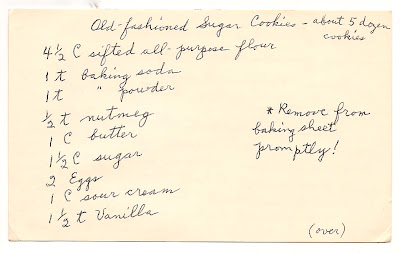 Old-fashioned Sugar Cookies - about 5 dozen
cookies
4 1/2 C sifted all-purpose flour
1 t baking soda
1 t " powder
1/2 t nutmeg
1 C butter
1 1/2 C sugar
2 Eggs
1 C sour cream
1 1/2 t Vanilla
* Remove from
baking sheet
promptly!
(over)